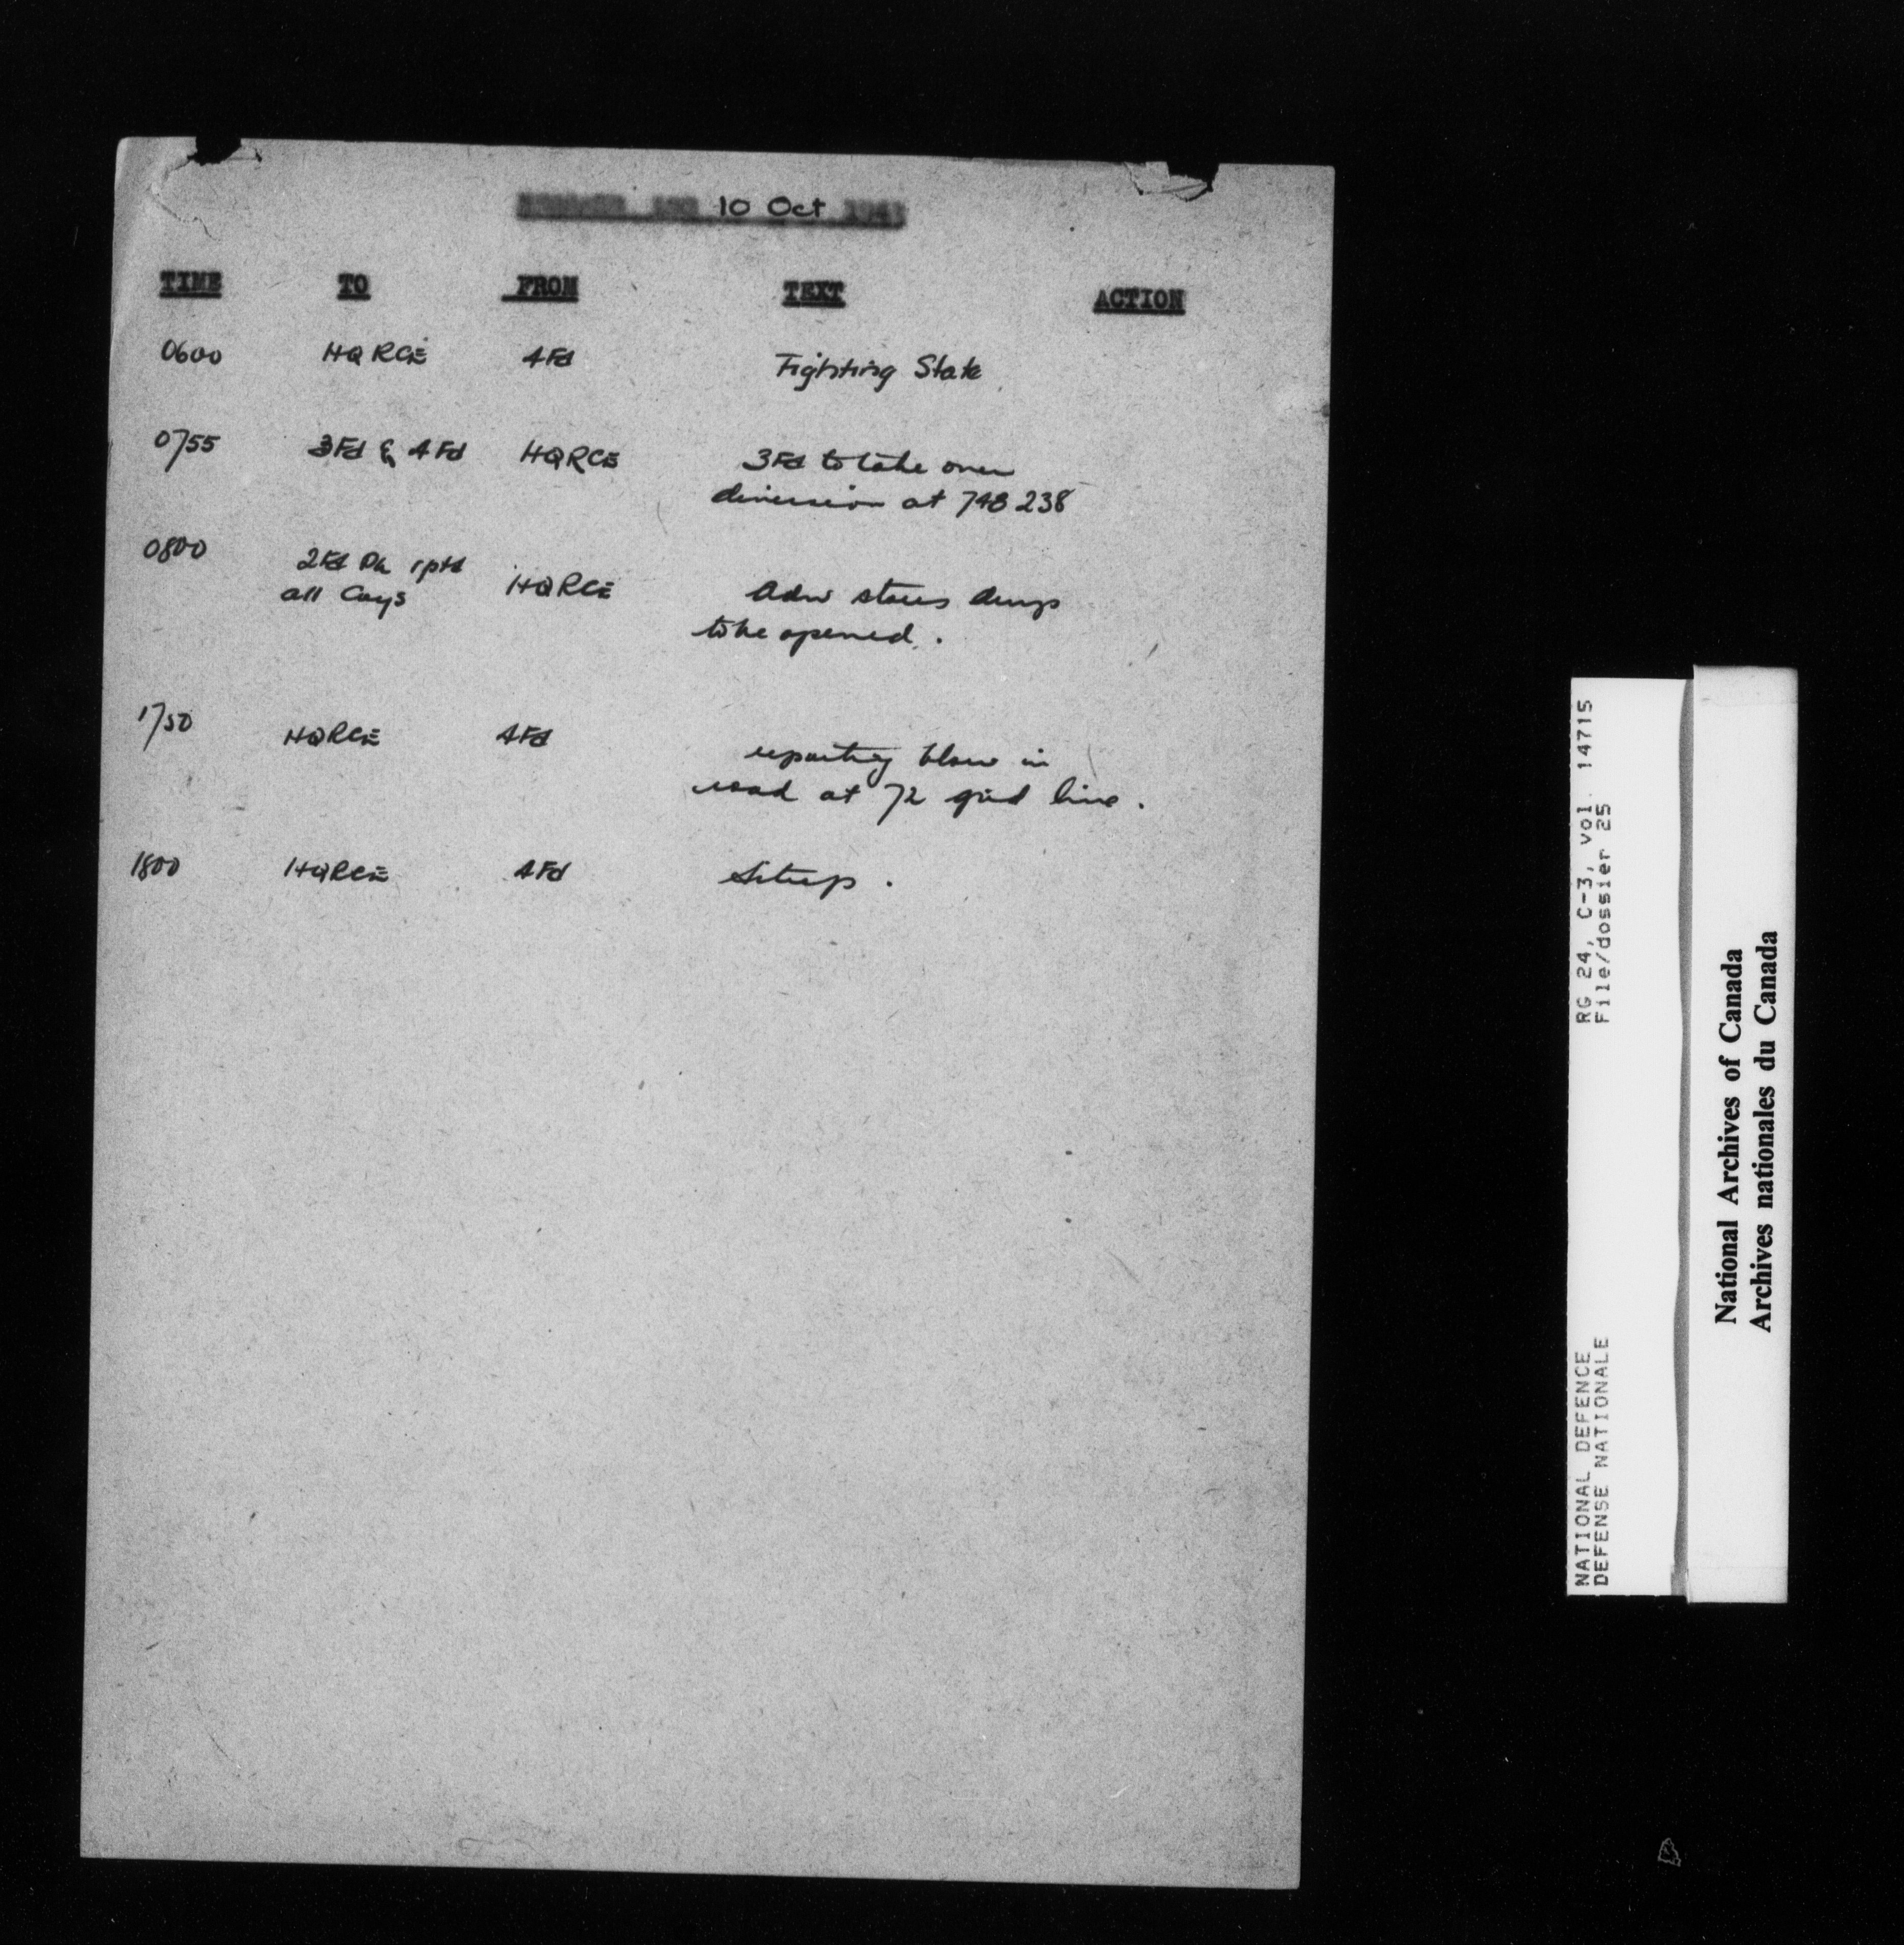 MESSAGE LOG 10 Oct 194
TIME TO FROM TEXT ACTION
0600 HQ RCE 4 Fd Fighting State
0755 3 Fd & 4 Fd HQRCE 3 Fd to take over
diversion at 748 238
0800 2 Fd Pk rptd HQRCE Adv stores dump
all Coys
to be opened.
1750 HQRCE 4 Fd reporting blow in
road at 72 grid line.
1800 HQRCE 4 Fd Sitrep.
RG 24, C-3, vol. 14715
File/dossier 25
NATIONAL DEFENCE
DEFENSE NATIONALE
National Archives of Canada
Archives nationales du Canada